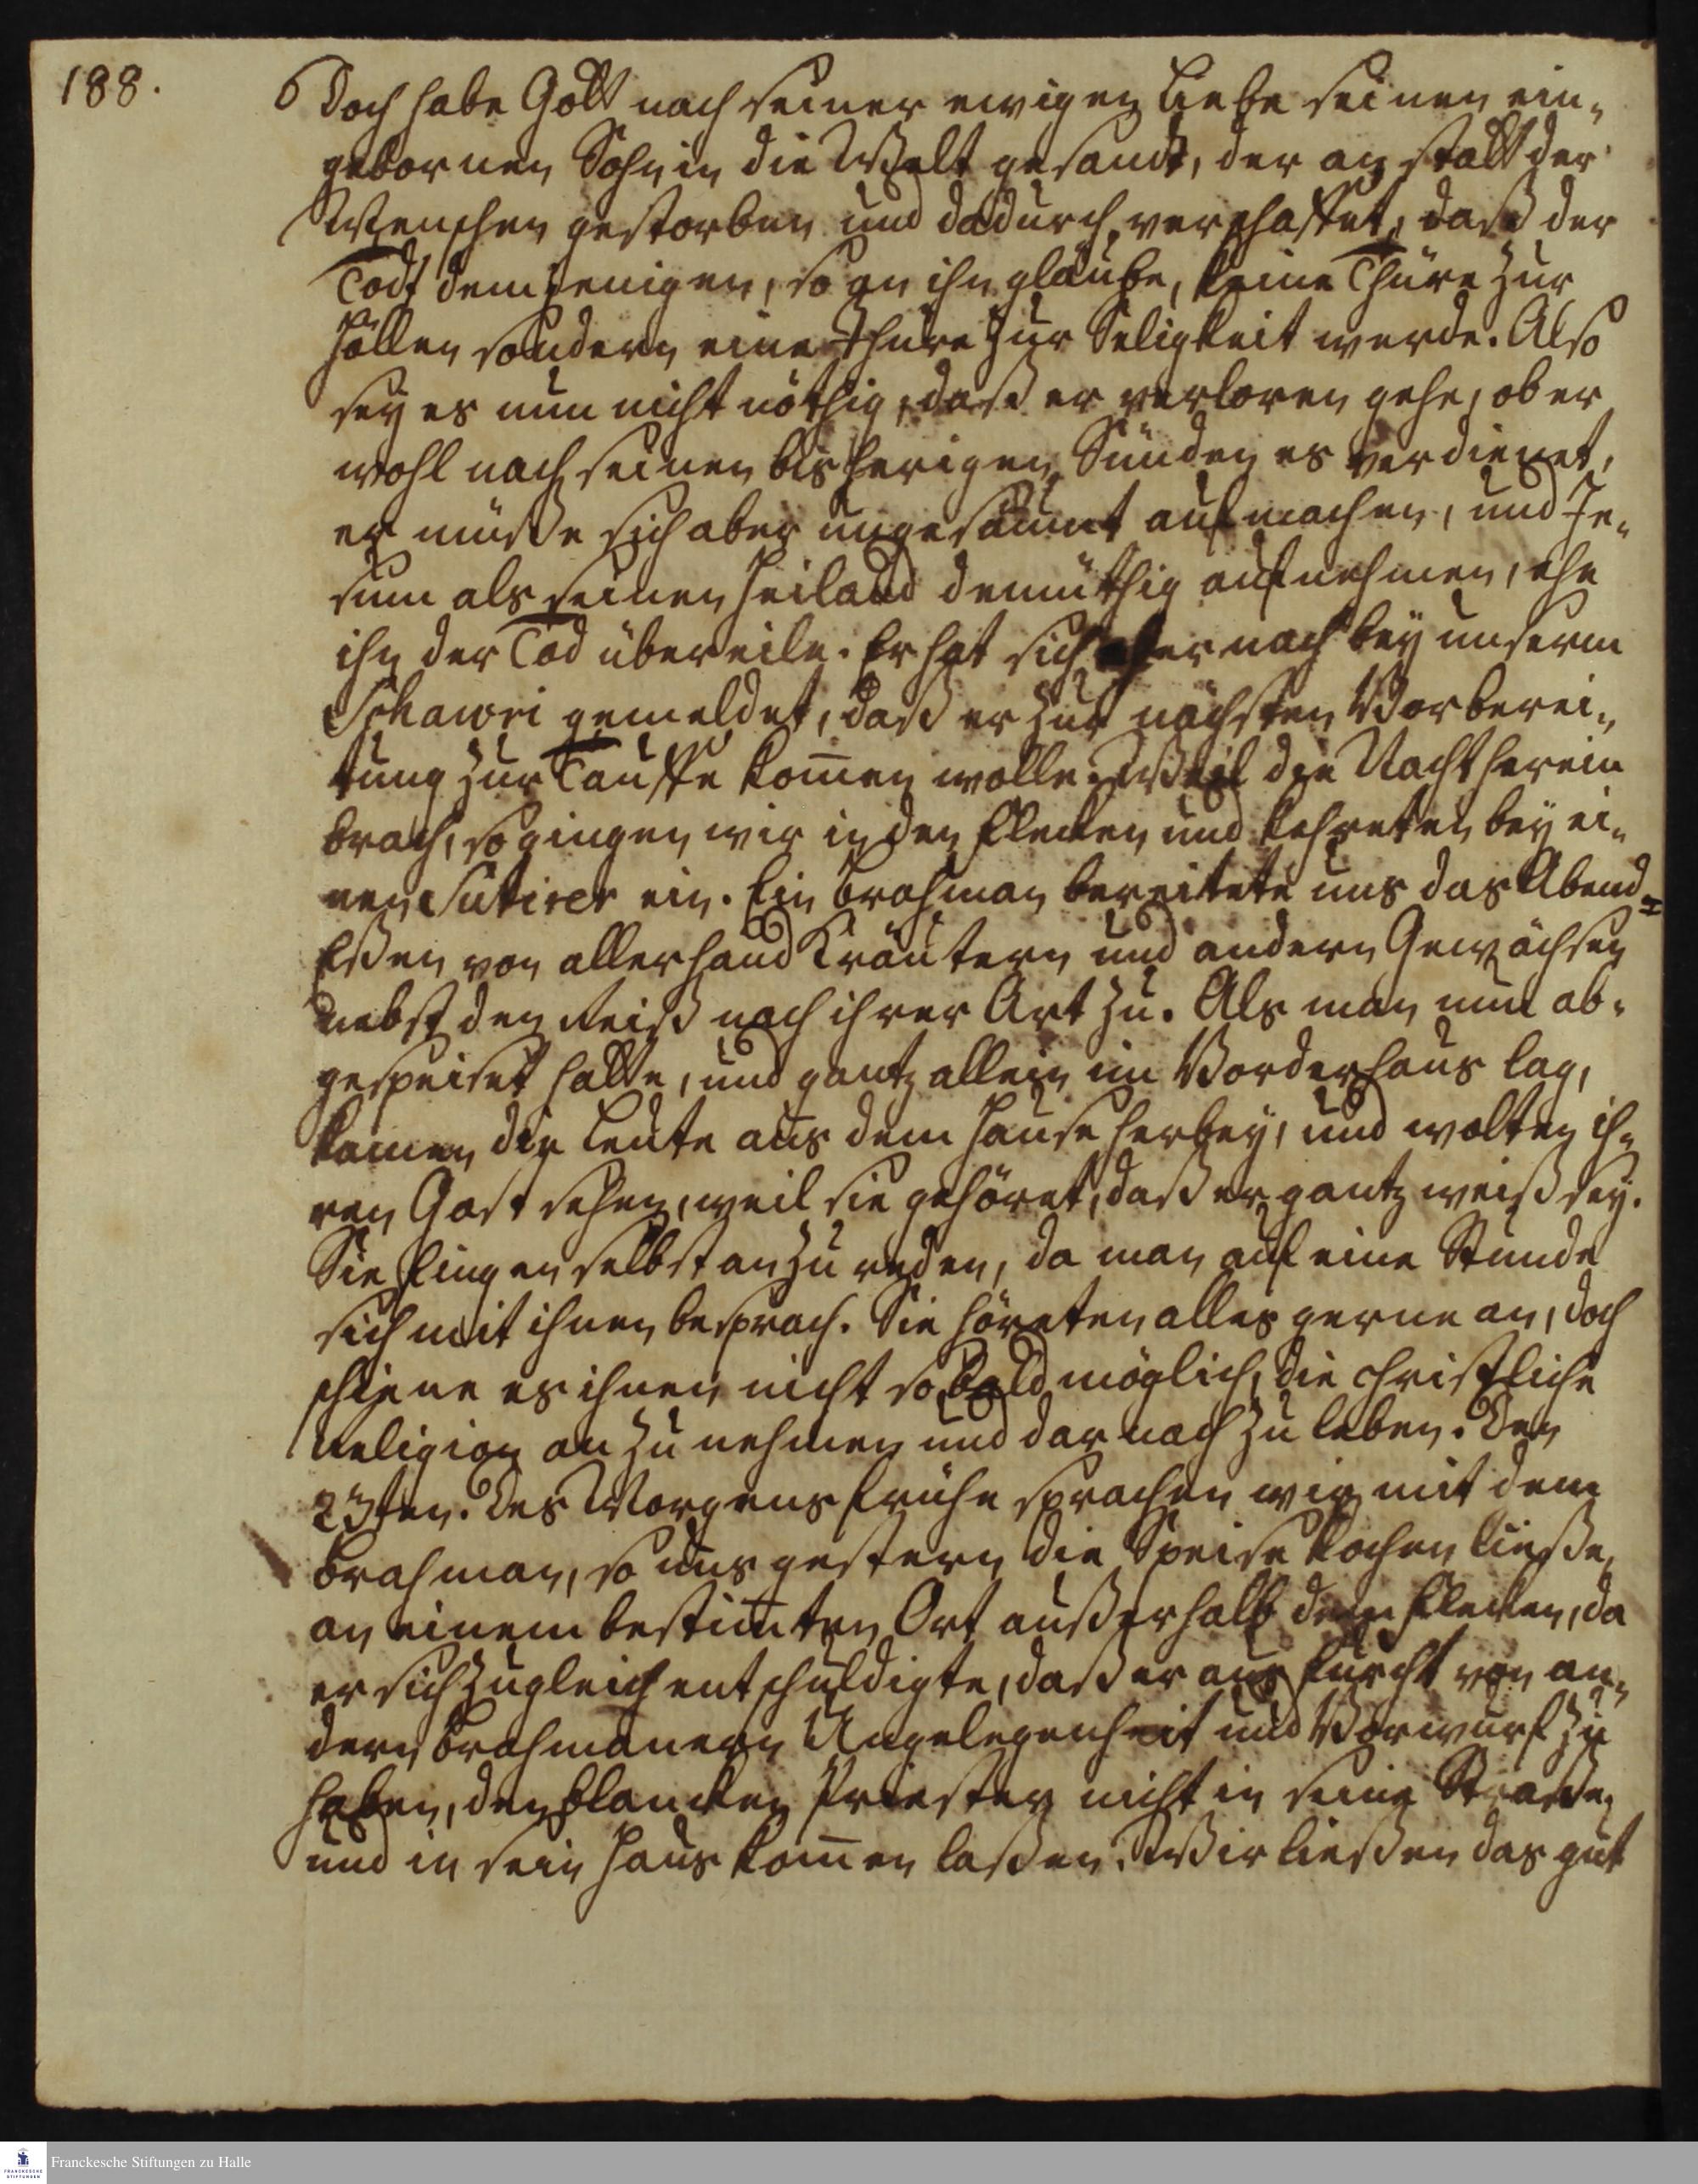 188.
Doch habe Gott nach seiner ewigen Liebe seinen ein-
gebornen Sohn in die Welt gesandt, der an statt der
Menschen gestorben und dadurch verschaffet, daß der
Todt demjenigen, so an ihn gläube, keine Thüre zur
Höllen sondern eine Thüre zur Seligkeit werde. Also
sey es nun nicht nöthig, daß er verloren gehe, ob er
wohl nach seinen bisherigen Sünden es verdienet,
er müße sich aber ungesäumt aufmachen, und Je-
sum als seinen Heiland demüthig aufnehmen, ehe
ihn der Tod übereile. Er hat sich hernach bey unserm
Schawri gemeldet, daß er zur nächsten Vorberei-
tung zur Tauffe kom̅en wolle. Weil die Nacht herein
brach, so gingen wir in den Flecken und kehreten bey ei-
nen Sutirer ein. Ein Brahman bereitete uns das Abend=
Eßen von allerhand Kräutern und andern Gewächsen
nebst den Reiß nach ihrer Art zu. Als man nun ab-
gespeiset hatte, und gantz allein im Vorderhaus lag,
kamen die Leute aus dem Hause herbey, und wolten ih-
ren Gast sehen, weil sie gehöret, daß er gantz weiß sey.
Sie fingen selbst an zu reden, da man auf eine Stunde
sich mit ihnen besprach. Sie höreten alles gerne an, doch
schiene es ihnen nicht so bald möglich, die christliche
Religion an zu nehmen und darnach zu leben. Den
23ten. Des Morgens frühe sprachen wir mit dem
Brahman, so uns gestern die Speise kochen ließe,
an einem bestim̅ten Ort außerhalb dem Flecken, da
er sich zugleich entschuldigte, daß er aus Furcht von an-
dern Brahmanern Ungelegenheit und Vorwurf zu
haben, den blancken Priester nicht in seine Straße
und in sein Haus kom̅en laßen. Wir ließen das gut
Franckesche Stiftungen zu Halle